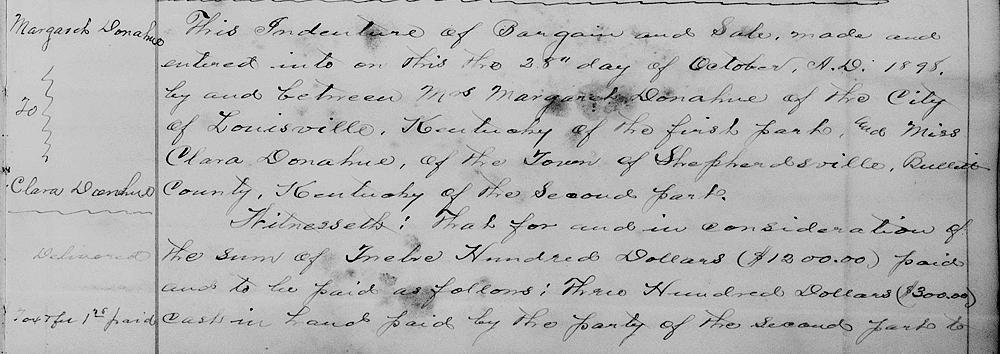 Margaret Donahue
To
Clara Donahue
Delivered
Tax & fee 1.25 paid
This Indenture of Bargain and Sale, made and
entered into on this the 28" day of October, A.D. 1898.
by and between Mrs Margaret Donahue of the City
of Louisville, Kentucky of the first part, and Miss
Clara Donahue, of the Town of Shepherdsville, Bullitt
County, Kentucky of the second part.
Witnesseth: That for and in consideration of
the sum of Twelve Hundred Dollars ($1200.00) paid
and to be paid as follows: Three Hundred Dollars ($300.00)
Cash in hand paid by the party of the second part to